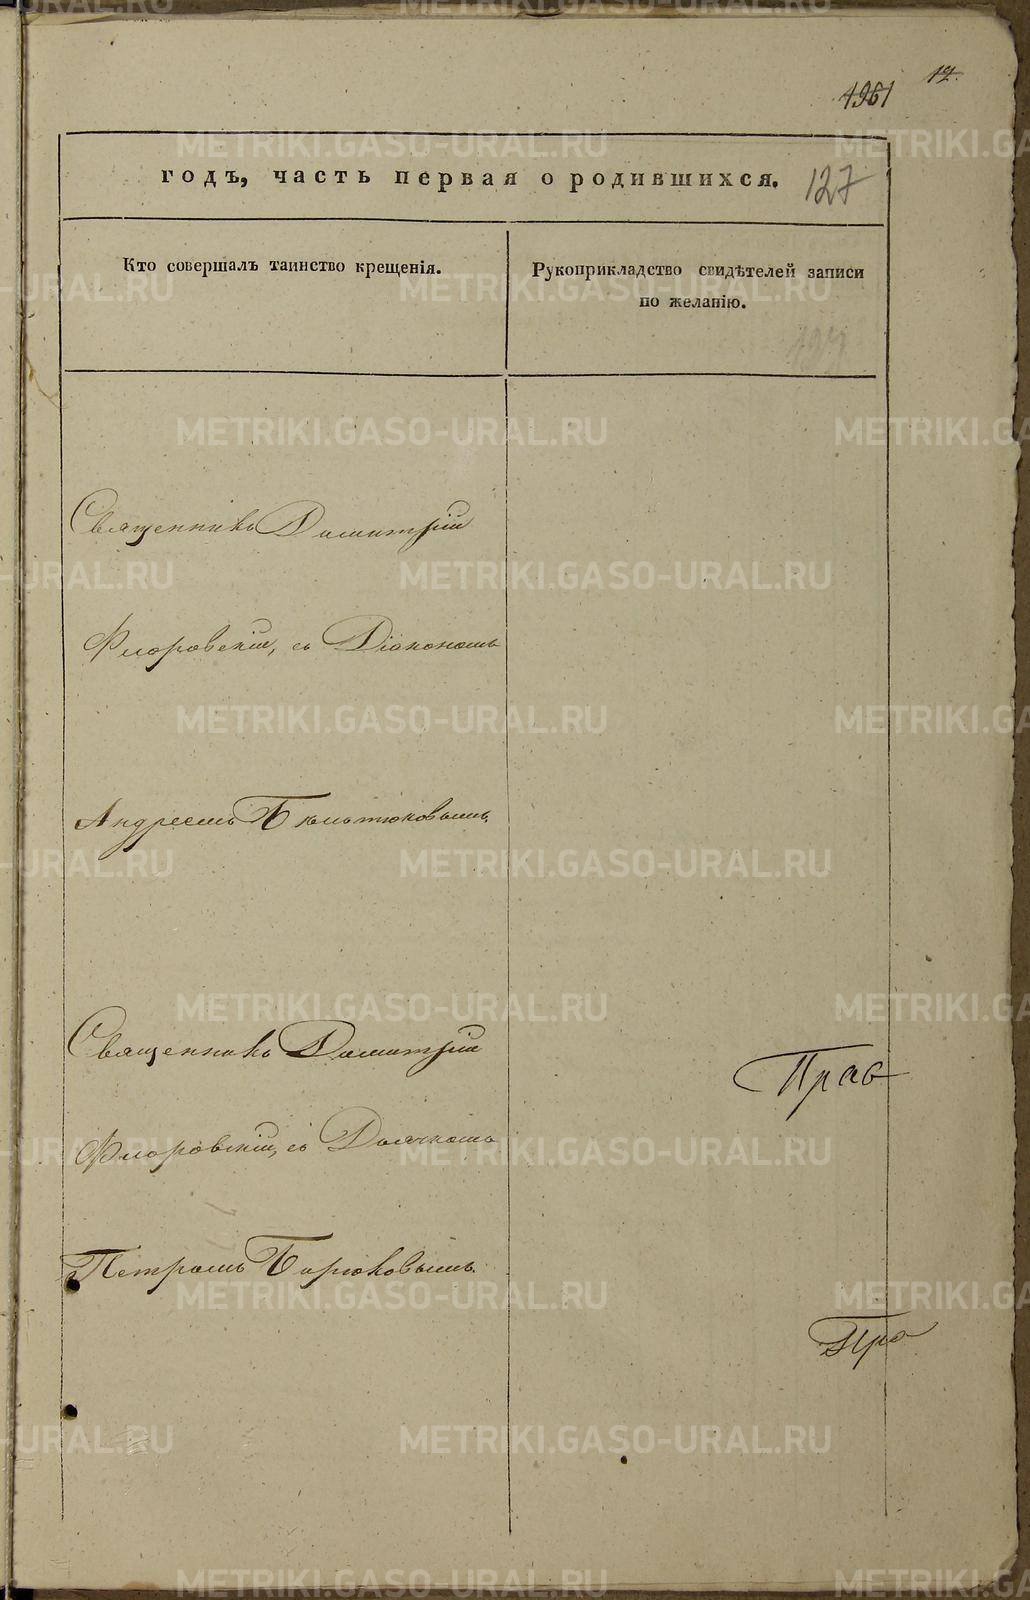 12.
1261
годъ, часть первая о родившихся.
127
Кто совершалъ таинство крещенія.
Рукоприкладство свидѣтелей записи
по желанію.
127
Священникъ Димитрій
Флоровскій, съ Діакономъ
Андреемъ
Священникъ Димитрій
Прав
Флоровскій, съ Дьячкомъ
Петромъ Бирюковымъ.
Пра
METRIKI.GASO-URAL.RU